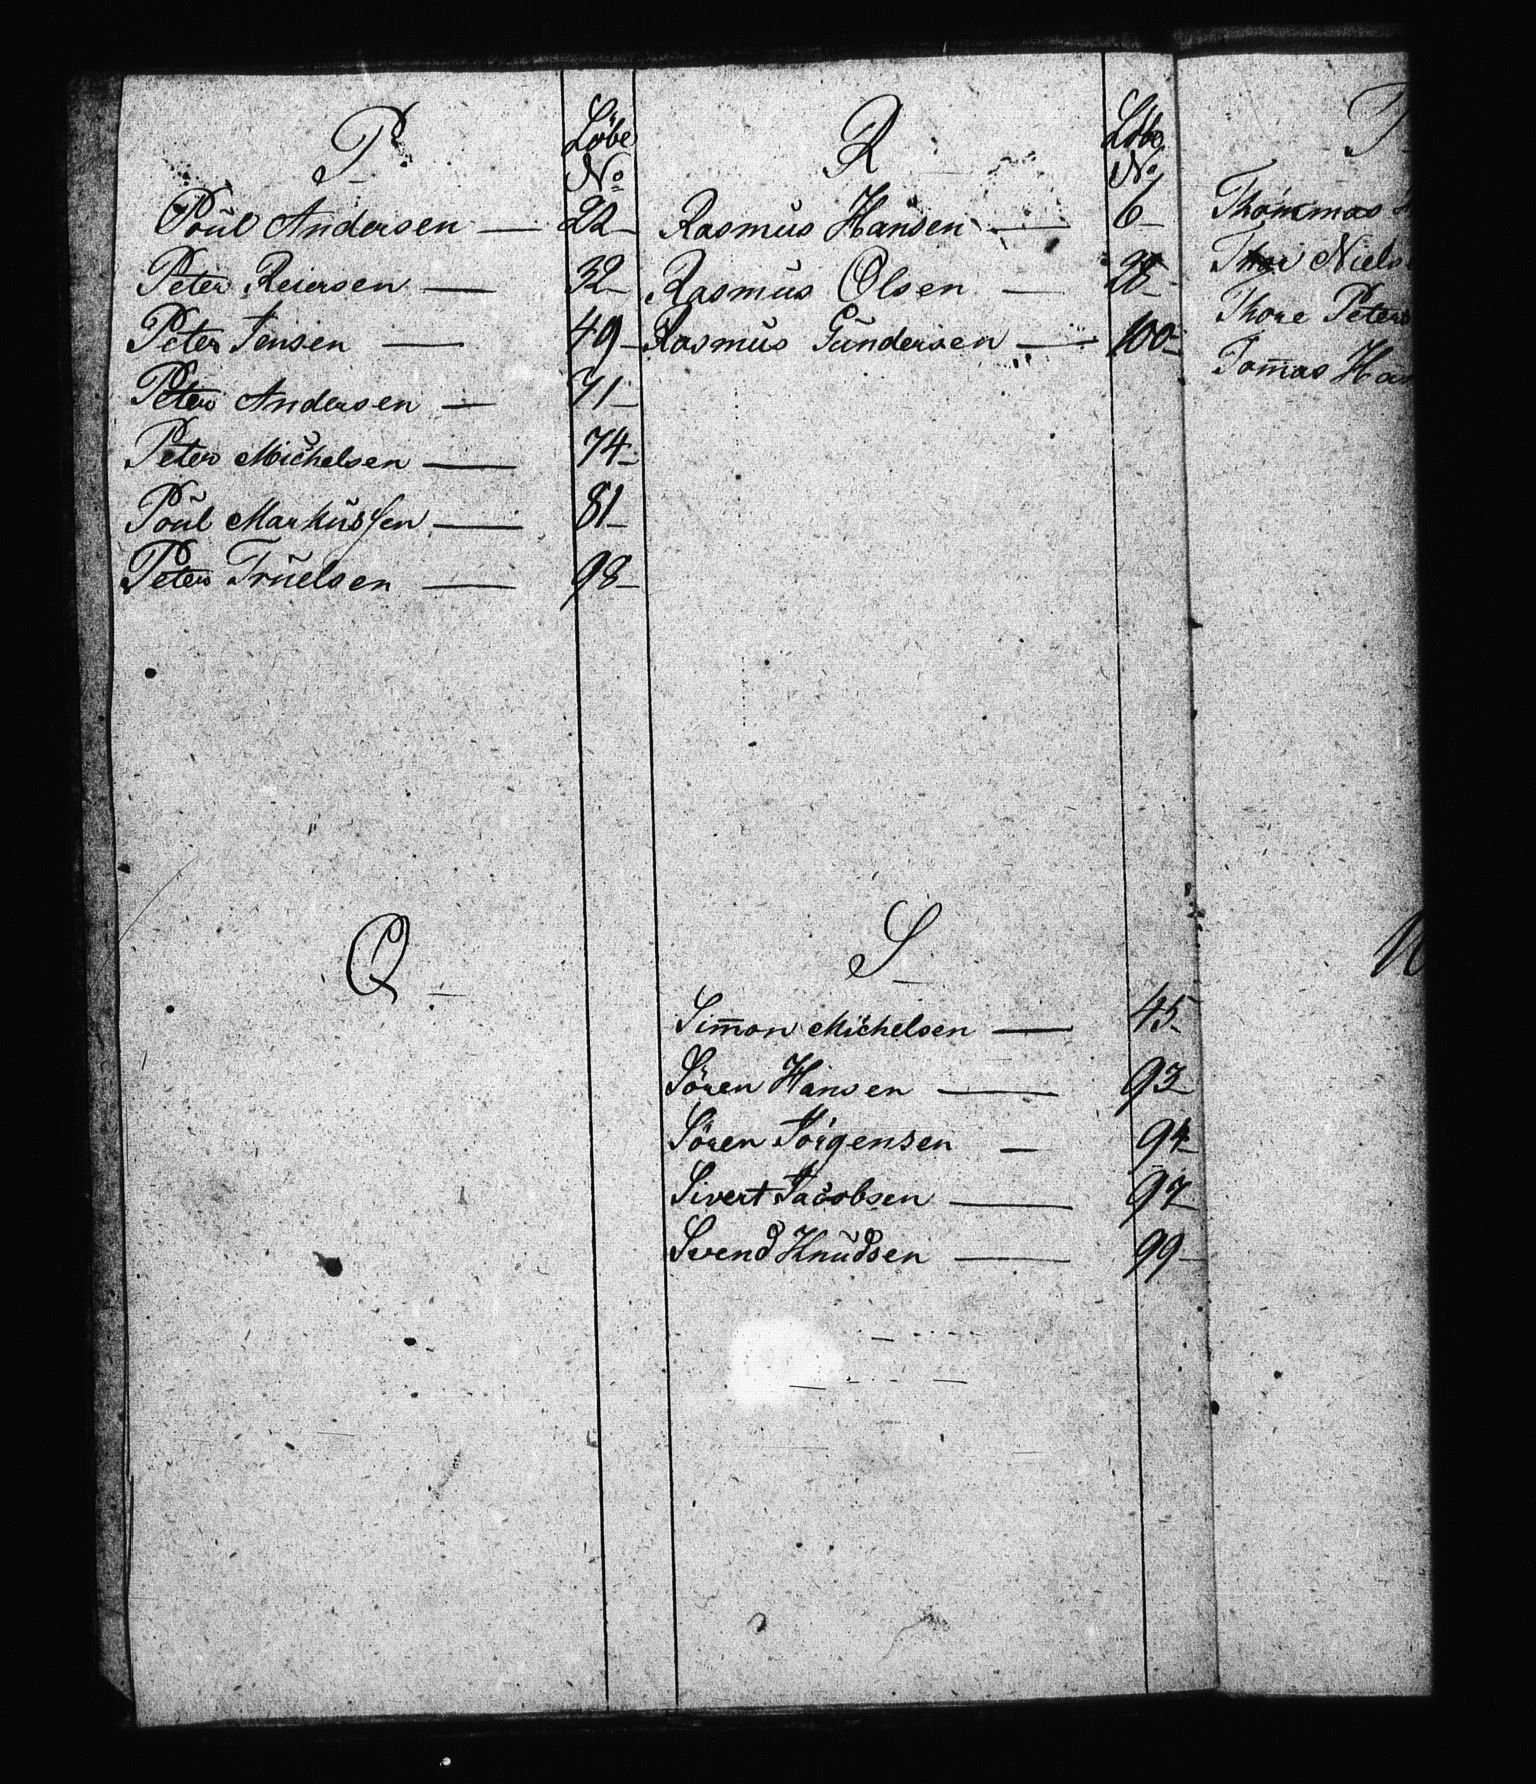 P
Löbe
No
Poul Andersen — 22
Peter Reiersen — 32
Peter Jensen — 49
Peter Andersen — 71
Peter Michelsen — 74
Poul Markussen — 81
Peter Truelsen — 98
Q
R
Löbe
No
Rasmus Hansen — 6
Rasmus Olsen —
Rasmus Gundersen — 100
S
Sim̄on Michelsen — 45
Sören Hansen — 93
Sören Jörgensen — 94
Sivert Jacobsen — 97
Svend Knudsen — 99
T
Thommas
Thor Niels
Thore Peters
Tom̄as Han